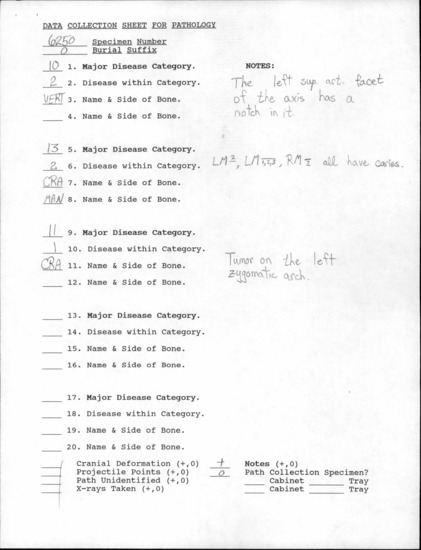 DATA COLLECTION SHEET FOR PATHOLOGY
6250 Specimen Number
0 Burial Suffix
10 1. Major Disease Category. NOTES:
2 2. Disease within Category. The left sup. art. facet
VERT 3. Name & Side of Bone. of the axis has a
____ 4. Name & Side of Bone. notch in it.
13 5. Major Disease Category.
2 6. Disease within Category. LM3, LM1,2,3, RM1 all have caries.
CRA 7. Name & Side of Bone.
MAN 8. Name & Side of Bone.
11 9. Major Disease Category.
1 10. Disease within Category. Tumor on the left
CRA 11. Name & Side of Bone. zygomatic arch.
____ 12. Name & Side of Bone.
____ 13. Major Disease Category.
____ 14. Disease within Category.
____ 15. Name & Side of Bone.
____ 16. Name & Side of Bone.
____ 17. Major Disease Category.
____ 18. Disease within Category.
____ 19. Name & Side of Bone.
____ 20. Name & Side of Bone.
____ Cranial Deformation (+,0) + Notes (+,0)
____ Projectile Points (+,0) 0 Path Collection Specimen?
____ Path Unidentified (+,0) ____ Cabinet ____ Tray
____ X-rays Taken (+,0) ____ Cabinet ____ Tray